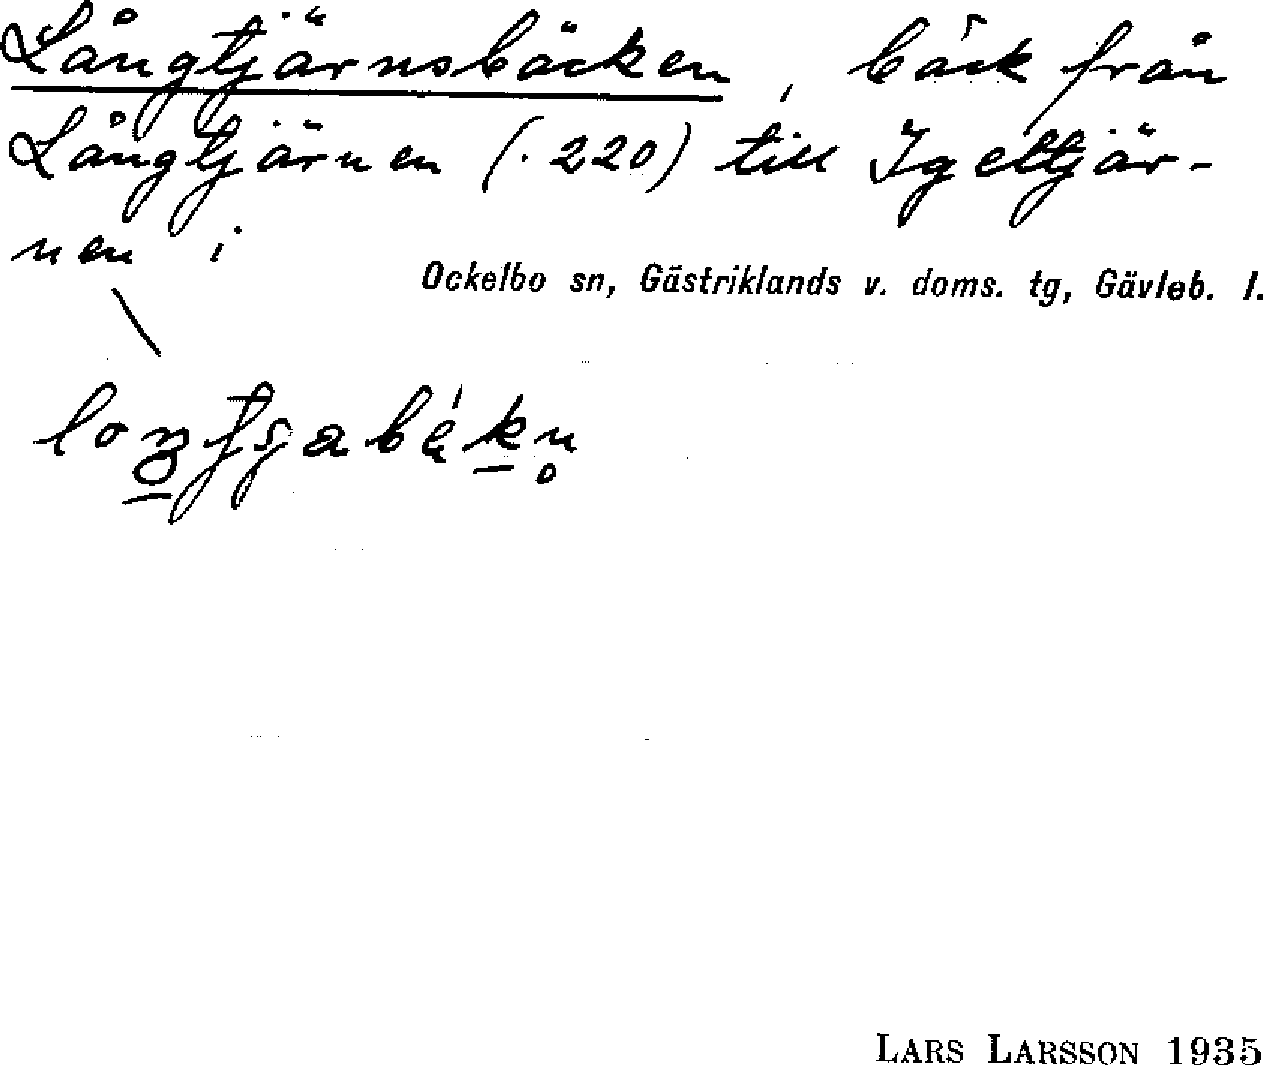 Långtjärnsbäcken, bäck från
Långtjärnen (. 220) till Igeltjär-
nen i
Ockelbo sn, Gästriklands v. doms. tg, Gävleb. l.
LARS LARSSON 1935